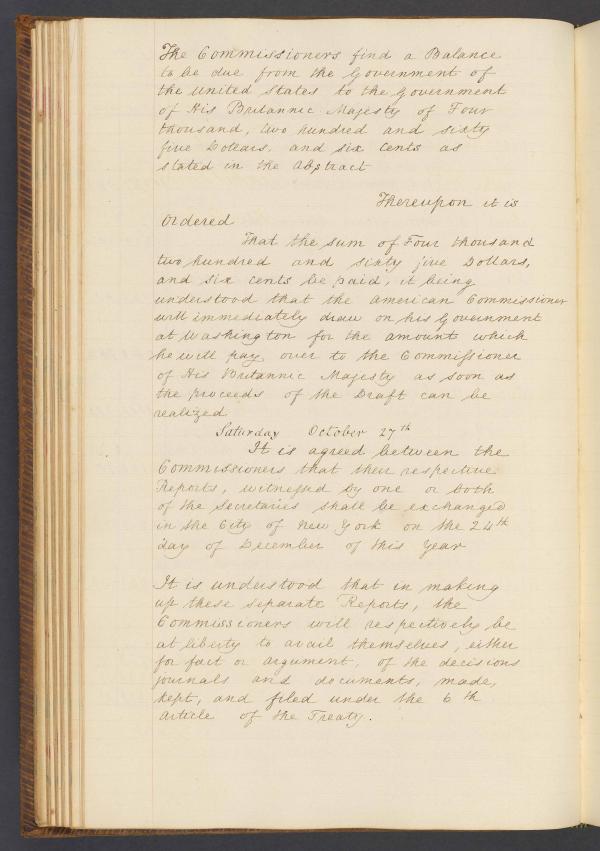 The Commissioners find a Balance
to be due from the Government of
the United States to the Government
of His Britannic Majesty of Four
thousand, two hundred and sixty
five Dollars, and six cents as
stated in the Abstract
Thereupon it is
Ordered
That the sum of Four thousand
two hundred and sixty five Dollars,
and six cents be paid, it being
understood that the American Commissioner
will immediately draw on his Government
at Washington for the amount which
he will pay over to the Commissioner
of His Britannic Majesty as soon as
the proceeds of the Draft can be
realized
Saturday October 27th
It is agreed between the
Commissioners that their respective
Reports, witnessed by one or both
of the Secretaries shall be exchanged
in the City of New York on the 24th
day of December of this Year
It is understood that in making
up these separate Reports, the
Commissioners will respectively be
at liberty to avail themselves, either
for fact or argument, of the decisions
journals and documents, made,
kept, and filed under the 6th
Article of the Treaty.